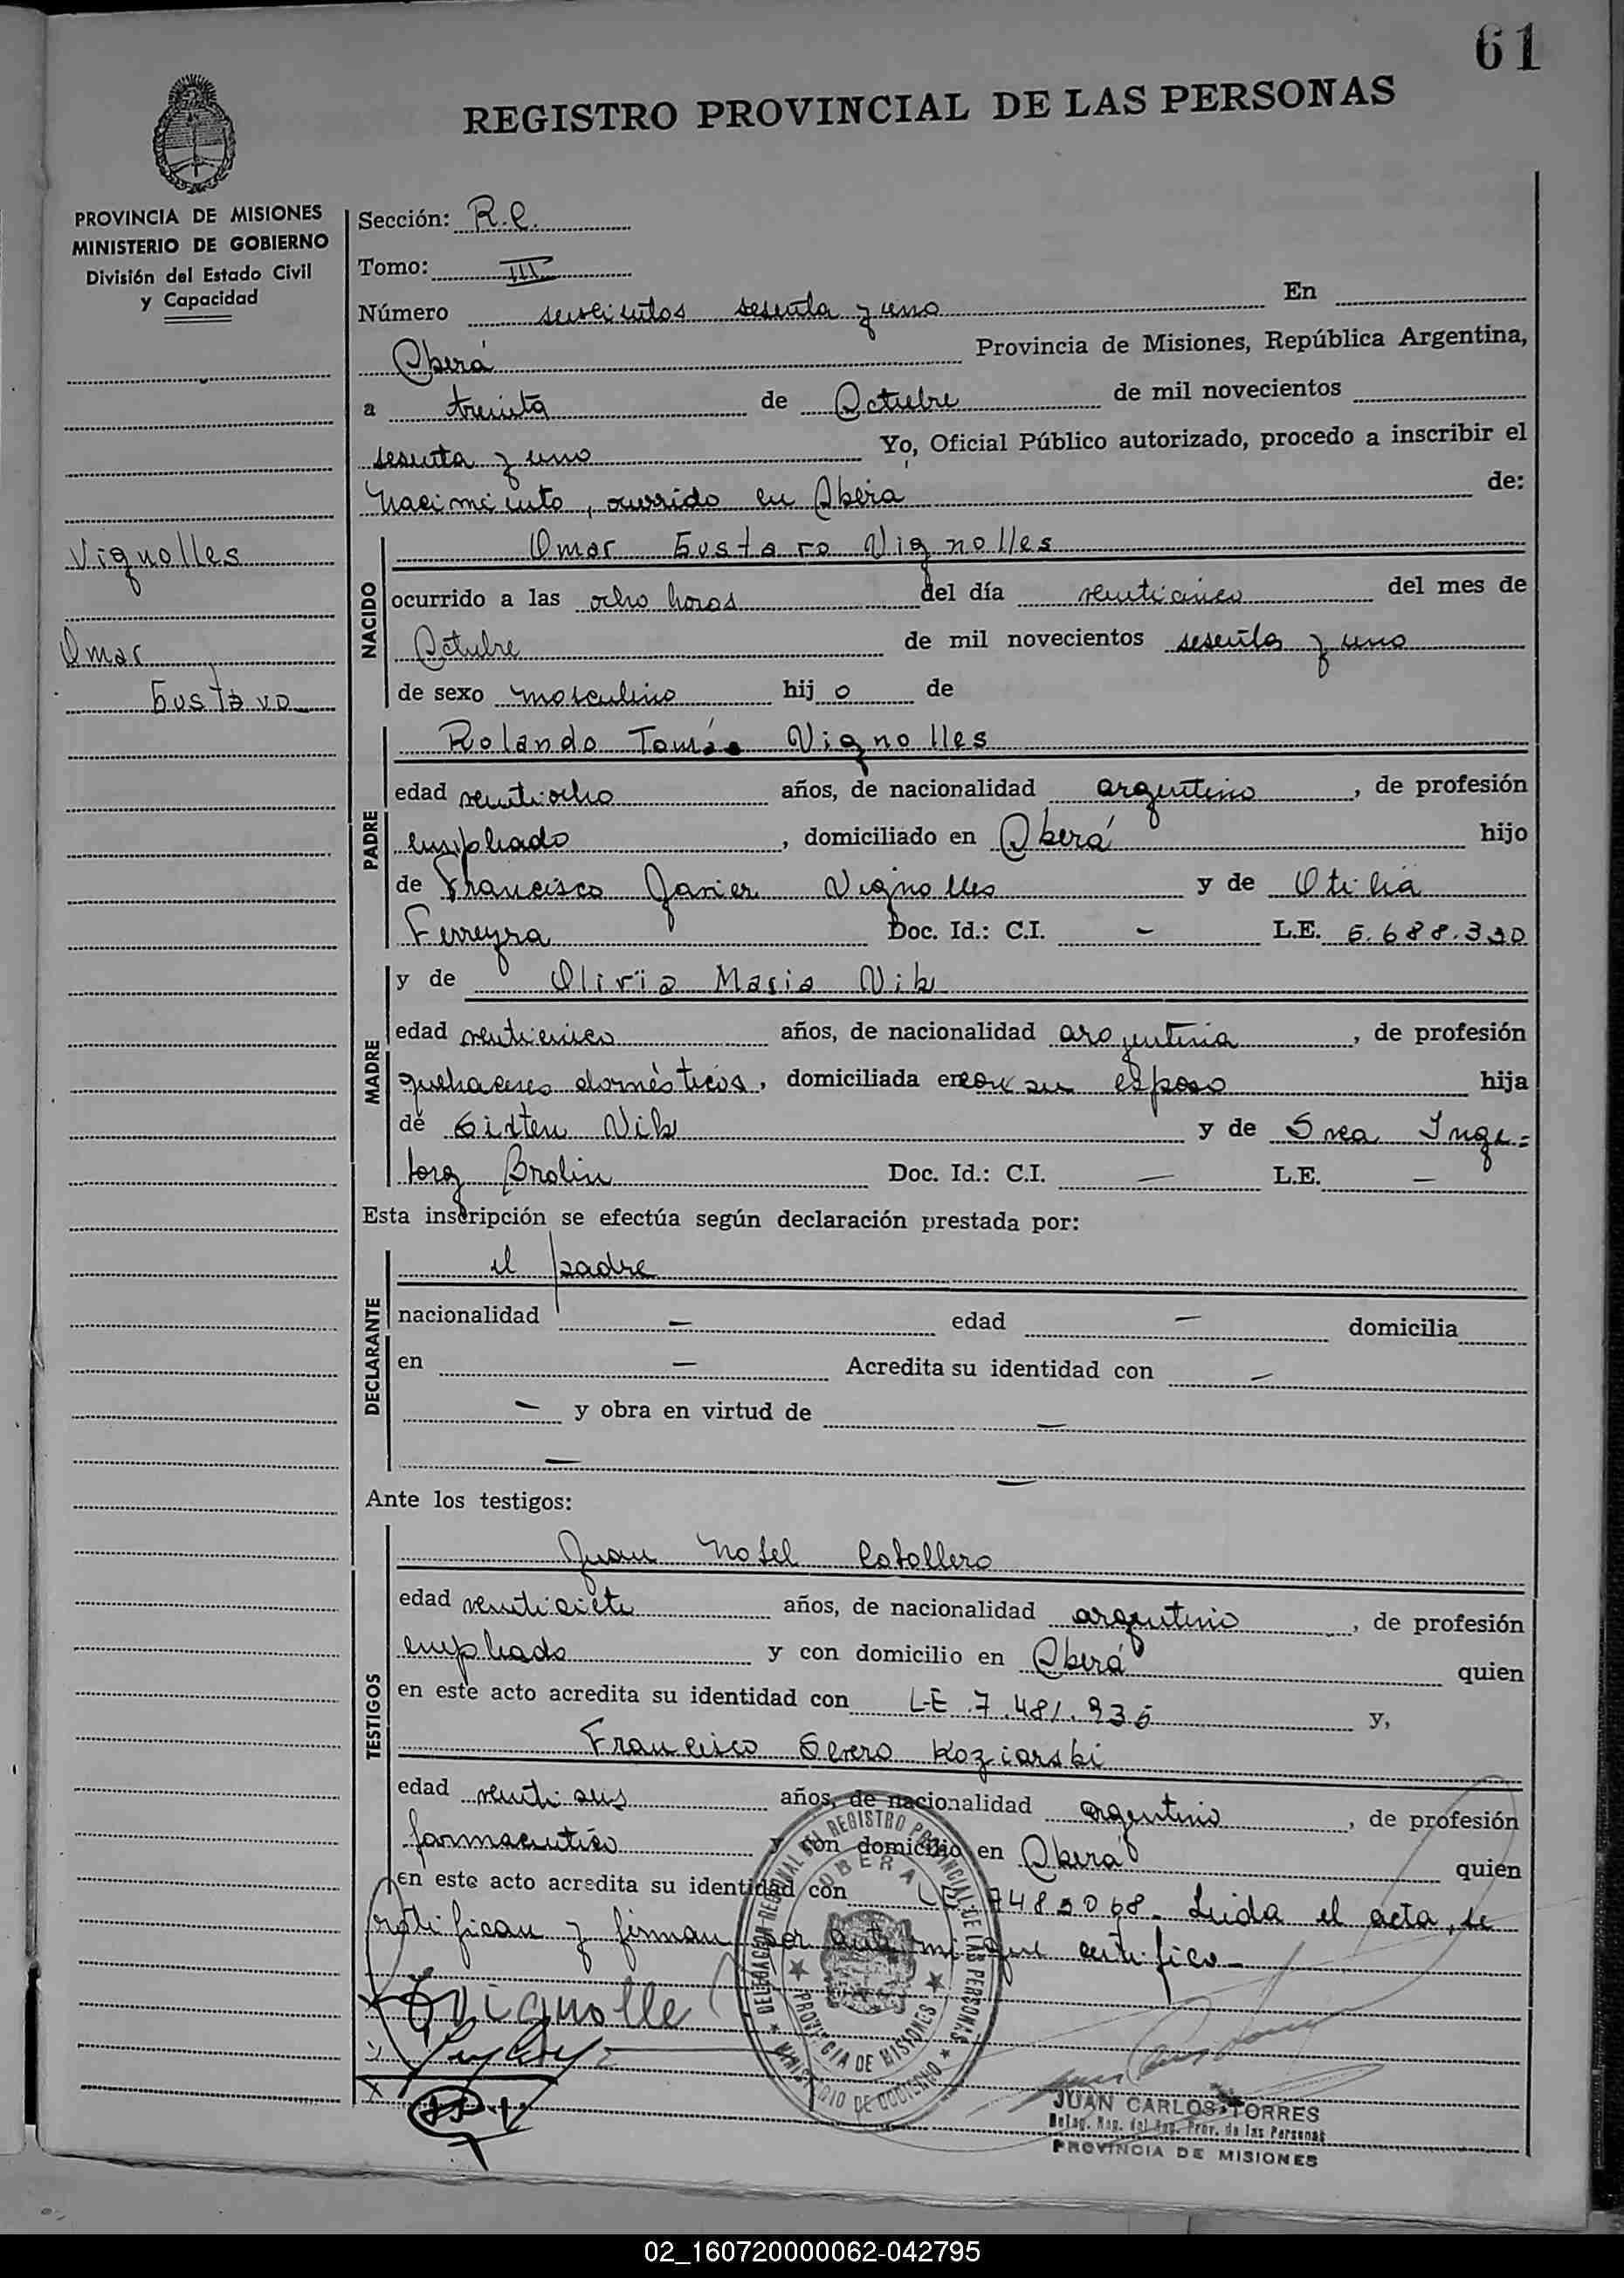 61
REGISTRO PROVINCIAL DE LAS PERSONAS
PROVINCIA DE MISIONES
MINISTERIO DE GOBIERNO
División del Estado Civil
y Capacidad
Vignolles
Omar
Gustavo
Sección: R.C.
Tomo: III
Número seiscientos sesenta y uno En
Oberá Provincia de Misiones, República Argentina,
a treinta de Octubre de mil novecientos
sesenta y uno Yo, Oficial Público autorizado, procedo a inscribir el
Nacimiento, ocurrido en Oberá de:
NACIDO
Omar Gustavo Vignolles
ocurrido a las ocho horas del día venticinco del mes de
Octubre de mil novecientos sesenta y uno
de sexo masculino hij o de
PADRE
Rolando Tomás Vignolles
edad ventiocho años, de nacionalidad argentino, de profesión
empleado, domiciliado en Oberá hijo
de Francisco Javier Vignolles y de Otilia
Ferreyra Doc. Id.: C.I. - L.E.
MADRE
y de Olivia Maria Vik
edad venticinco años, de nacionalidad argentina, de profesión
quehaceres domésticos, domiciliada en con su esposo hija
de Sixten Vik y de Svea Inge=
borg Brolin Doc. Id.: C.I. — L.E. —
Esta inscripción se efectúa según declaración prestada por:
DECLARANTE
el padre
nacionalidad — edad — domicilia
en — Acredita su identidad con —
— y obra en virtud de —
— —
Ante los testigos:
TESTIGOS
Juan Caballero
edad ventisiete años, de nacionalidad argentino, de profesión
empleado y con domicilio en Oberá quien
en este acto acredita su identidad con LE 7.481.935 y,
Francisco Severo Koziarski
edad ventiseis años, de nacionalidad argentino, de profesión
farmaceutico y con domicilio en Oberá quien
en este acto acredita su identidad con Leida el acta, se
ratifican y firman por ante mi que certifico-
Vignolle
DELEGACION REGIONAL DEL REGISTRO PROVINCIAL DE LAS PERSONAS
OBERA
PROVINCIA DE MISIONES
MINISTERIO DE GOBIERNO
JUAN CARLOS TORRES
Deleg. Reg. del Reg. Prov. de las Personas
PROVINCIA DE MISIONES
02_160720000062-042795